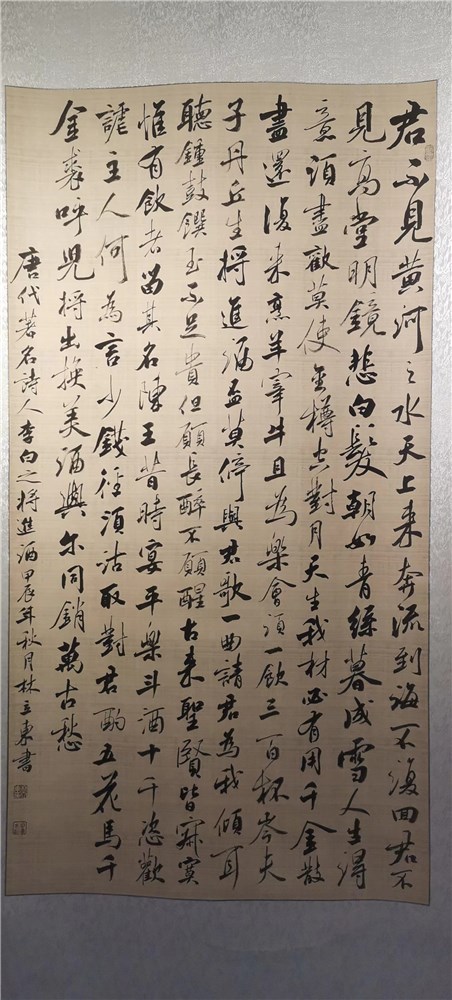 君不見黃河之水天上來奔流到海不復回君不
見高堂明鏡悲白髮朝如青絲暮成雪人生得
意須盡歡莫使金樽空對月天生我材必有用千金散
盡還復來烹羊宰牛且為樂會須一飲三百杯岑夫
子丹丘生將進酒盃莫停與君歌一曲請君為我傾耳
聽鐘鼓饌玉不足貴但願長醉不願醒古來聖賢皆寂寞
惟有飲者留其名陳王昔時宴平樂斗酒十千恣歡
謔主人何為言少錢徑須沽取對君酌五花馬千
金裘呼兒將出換美酒與尔同銷萬古愁
唐代著名詩人李白之將進酒甲辰年秋月林立東書